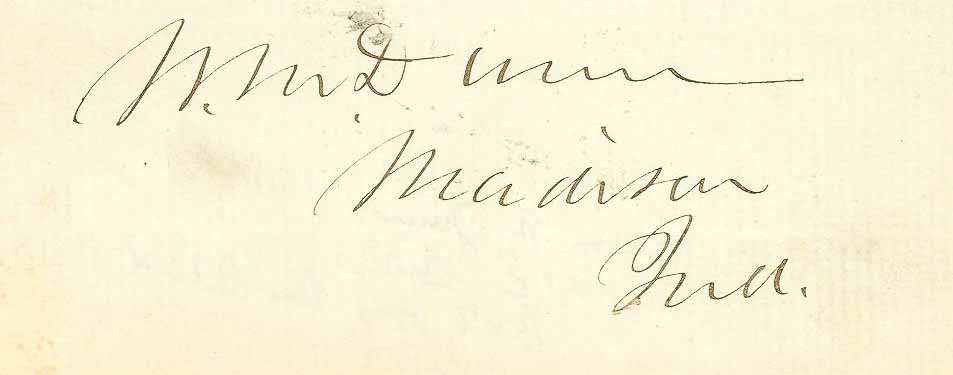 W. M. Dunn
Madison
Ind.